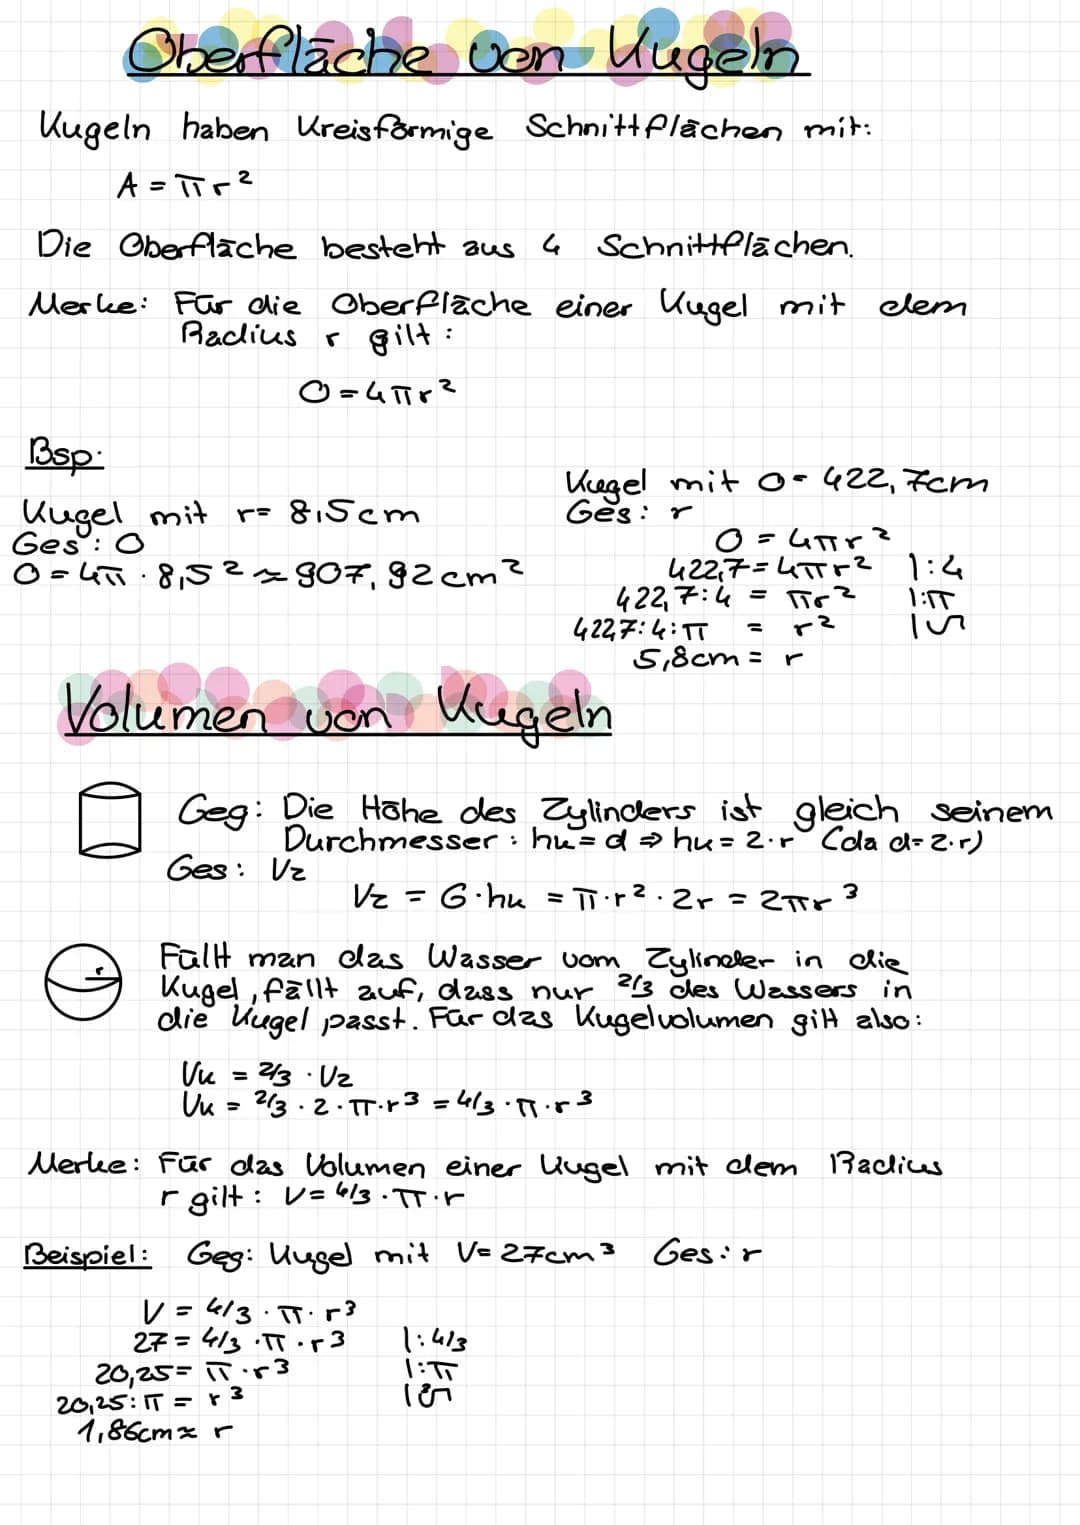 Oberfläche von Kugeln
Kugeln haben Kreisförmige Schnittflächen mit:
A = πr²
Die Oberfläche besteht aus 4 Schnittflächen.
Merke: Für die Oberfläche einer Kugel mit dem
Radius r gilt:
O = 4πr²
Bsp:
Kugel mit r= 8,5cm
Ges: O
O = 4π · 8,5² ≈ 907,92cm²
Kugel mit O= 422,7cm
Ges: r
O = 4πr²
422,7 = 4πr² |:4
422,7:4 = πr² |:π
422,7:4:π = r² |√
5,8cm = r
Volumen von Kugeln
Geg: Die Höhe des Zylinders ist gleich seinem
Durchmesser: hk = d ⇒ hk = 2·r (da d=2·r)
Ges: Vz
Vz = G·hk = π·r²·2r = 2πr³
r
Füllt man das Wasser vom Zylinder in die
Kugel, fällt auf, dass nur 2/3 des Wassers in
die Kugel passt. Für das Kugelvolumen gilt also:
Vk = 2/3 · Vz
Vk = 2/3 · 2 · π·r³ = 4/3 · π · r³
Merke: Für das Volumen einer Kugel mit dem Radius
r gilt: V= 4/3 · π · r
Beispiel: Geg: Kugel mit V= 27cm³ Ges: r
V = 4/3 · π · r³
27 = 4/3 · π · r³ |: 4/3
20,25 = π · r³ |:π
20,25:π = r³ |∛
1,86cm ≈ r